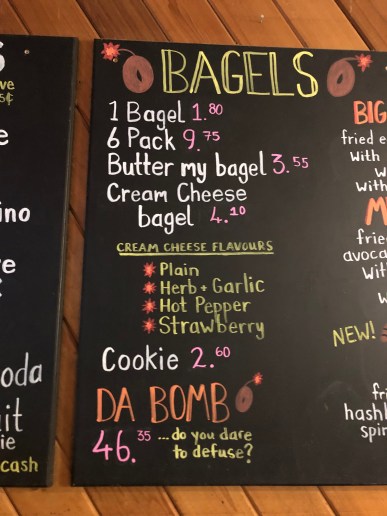 BAGELS
1 Bagel 1.80
6 Pack 9.75
Butter my bagel 3.55
Cream Cheese
bagel 4.10
CREAM CHEESE FLAVOURS
Plain
Herb + Garlic
Hot Pepper
Strawberry
Cookie 2.60
DA BOMB
46.35 ...do you dare
to defuse?
BIG
fried e
with
w
with
M
fried
avoca
with
w
NEW!
fri
hashb
spin
S
ve
5¢
e
ino
re
oda
it
ie
cash